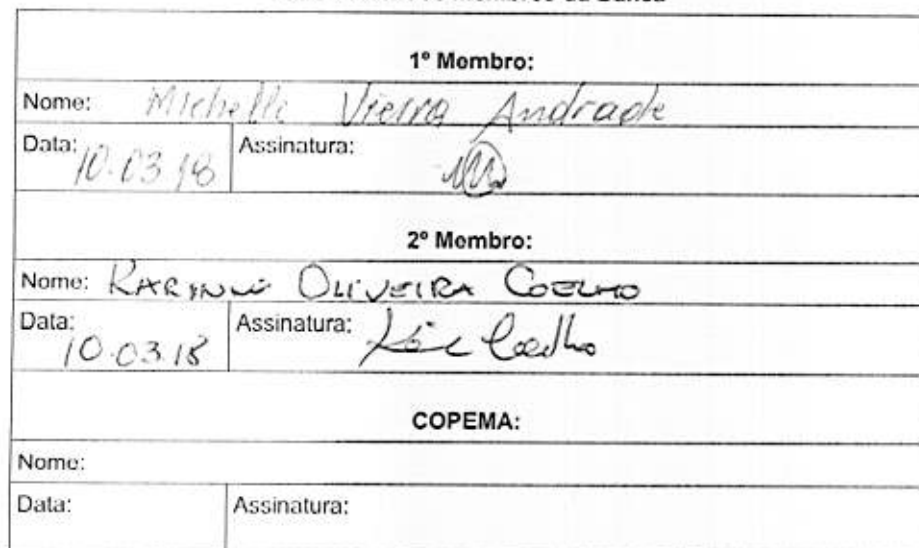 1º Membro:
Nome: Michelle Vieira Andrade
Data: 10.03.18 Assinatura:
2º Membro:
Nome: KARINNE OLIVEIRA COELHO
Data: 10.03.18 Assinatura: Coelho
COPEMA:
Nome:
Data: Assinatura: